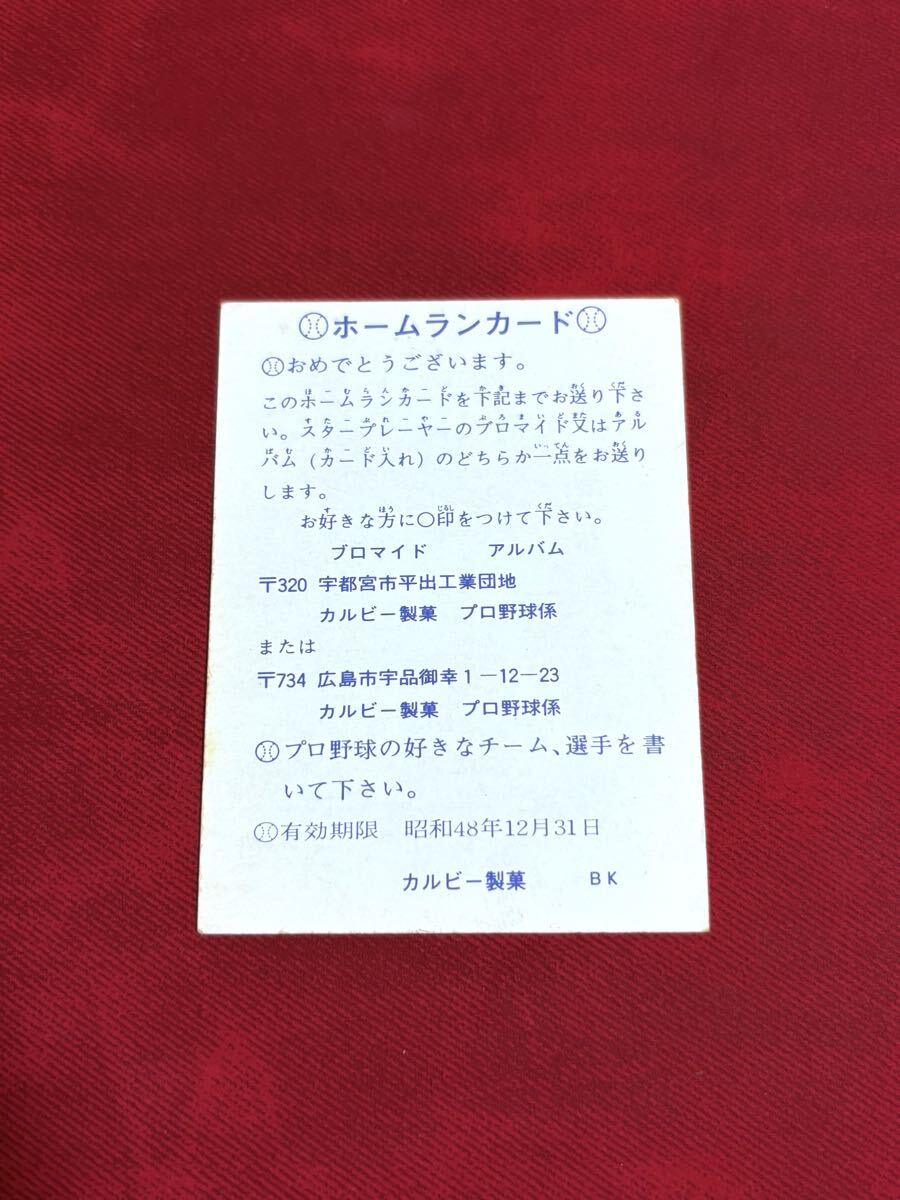 ホームランカード
おめでとうございます。
このホームランカードを下記までお送り下さ
い。スタープレーヤーのブロマイド又はアル
バム（カード入れ）のどちらか一点をお送り
します。
お好きな方に〇印をつけて下さい。
ブロマイド　　アルバム
〒320 宇都宮市平出工業団地
カルビー製菓　プロ野球係
または
〒734 広島市宇品御幸1－12－23
カルビー製菓　プロ野球係
プロ野球の好きなチーム、選手を書
いて下さい。
有効期限　昭和48年12月31日
カルビー製菓　　BK